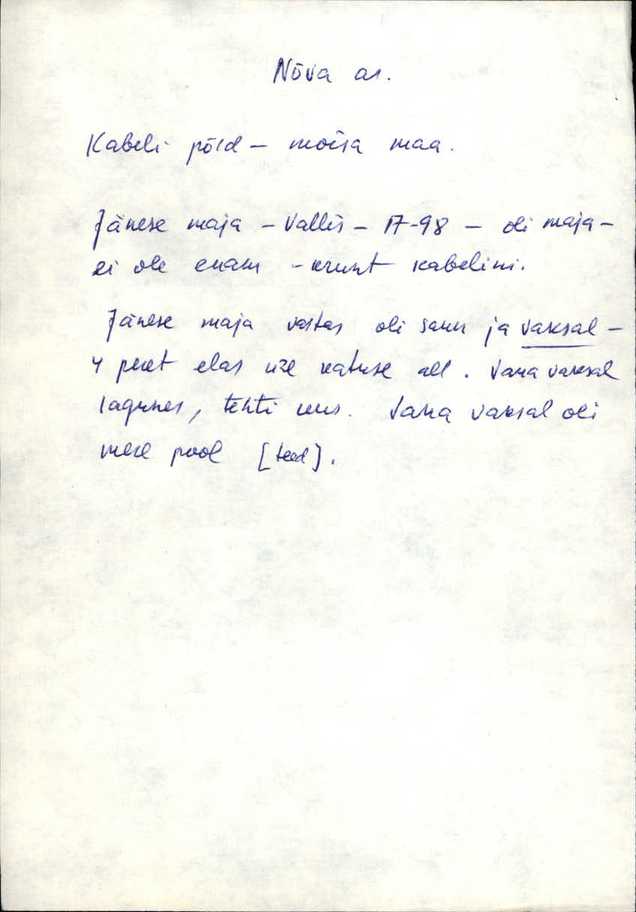 Nõva as.
Kabeli põld – mõisa maa.
Jänese maja – Vallis – 17-98 – oli maja –
ei ole enam – krunt kabelini.
Jänese maja vastas oli saun ja vaksal –
4 peret elas ühe katuse all. Vana vaksal
lagunes, tehti uus. Vana vaksal oli
mere pool [teed].